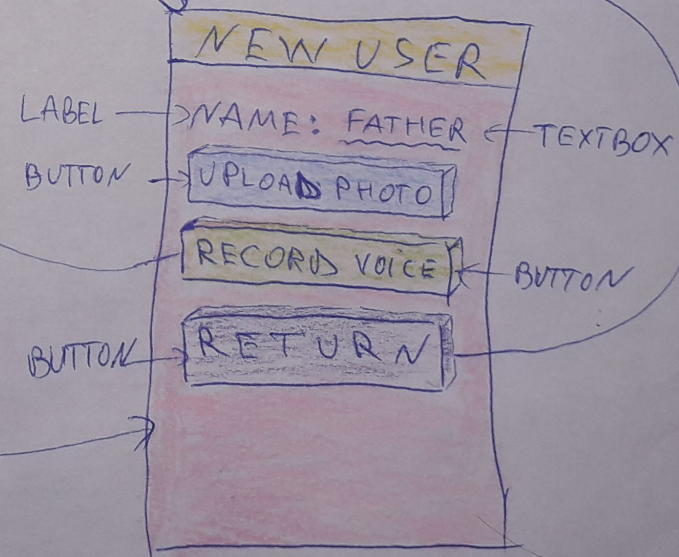 NEW USER
LABEL NAME: FATHER TEXTBOX
BUTTON UPLOAD PHOTO
RECORD VOICE BUTTON
BUTTON RETURN